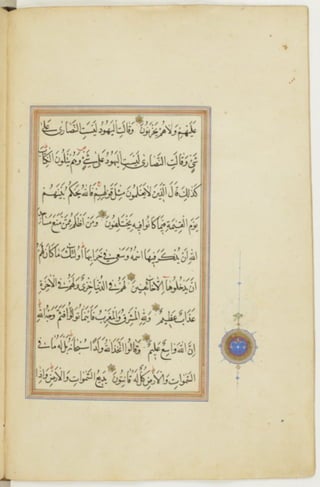 عليهم ولا هم يحزنون وقالت اليهود ليست النصارى على
شيء وقالت النصارى ليست اليهود على شيء وهم يتلون الكتاب
كذلك قال الذين لا يعلمون مثل قولهم فالله يحكم بينهم
يوم القيمة فيما كانوا فيه يختلفون ومن أظلم ممن منع مساجد
الله أن يذكر فيها اسمه وسعى في خرابها أولئك ما كان لهم
أن يدخلوها إلا خائفين لهم في الدنيا خزي ولهم في الآخرة
عذاب عظيم ولله المشرق والمغرب فأينما تولوا فثم وجه الله
إن الله واسع عليم وقالوا اتخذ الله ولدا سبحانه بل له ما في
السموات والأرض كل له قانتون بديع السموات والأرض وإذا